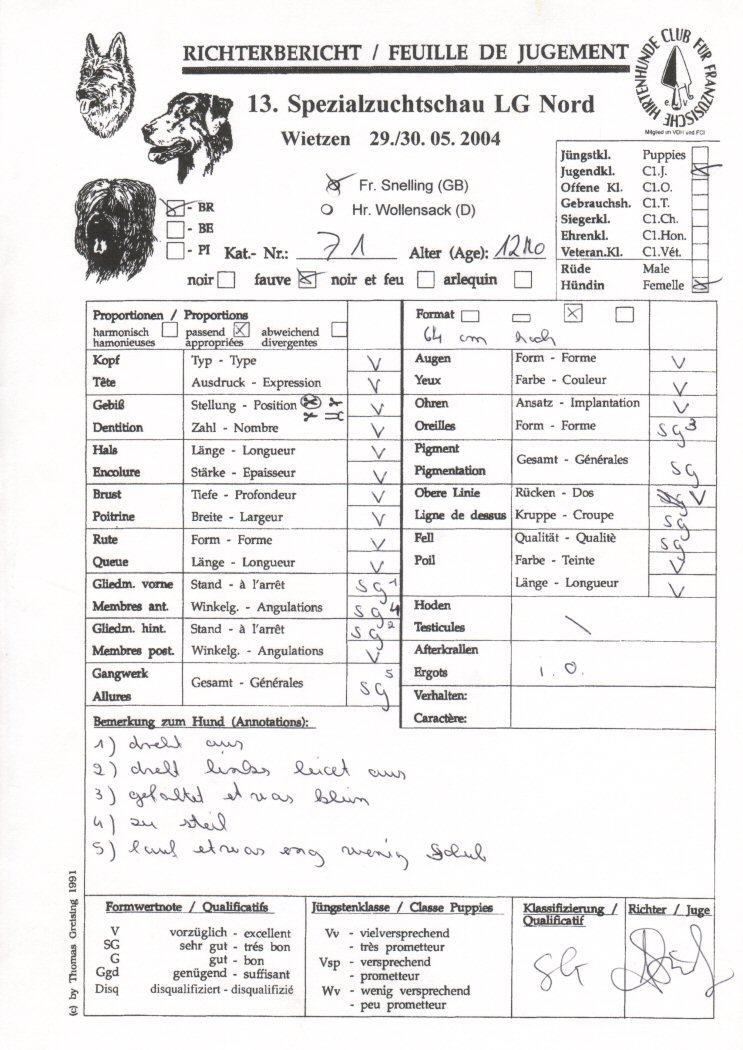 RICHTERBERICHT / FEUILLE DE JUGEMENT
CLUB FÜR FRANZÖSISCHE HIRTENHUNDE e.V.
Mitglied im VDH und FCI
13. Spezialzuchtschau LG Nord
Wietzen 29./30. 05. 2004
Fr. Snelling (GB)
Hr. Wollensack (D)
Jüngstkl. Puppies
Jugendkl. Cl.J.
Offene Kl. Cl.O.
Gebrauchsh. Cl.T.
Siegerkl. Cl.Ch.
Ehrenkl. Cl.Hon.
Veteran.Kl. Cl.Vét.
Rüde Male
Hündin Femelle
- BR
- BE
- PI
Kat.- Nr.: 71 Alter (Age): 12 Mo
noir fauve noir et feu arlequin
Proportionen / Proportions
harmonisch passend abweichend
hamonieuses appropriées divergentes
Format
64 cm hoch
Kopf Typ - Type V
Tête Ausdruck - Expression V
Gebiß Stellung - Position V
Dentition Zahl - Nombre V
Hals Länge - Longueur V
Encolure Stärke - Epaisseur V
Brust Tiefe - Profondeur V
Poitrine Breite - Largeur V
Rute Form - Forme V
Queue Länge - Longueur V
Gliedm. vorne Stand - à l'arrêt SG 1
Membres ant. Winkelg. - Angulations SG 4
Gliedm. hint. Stand - à l'arrêt SG 2
Membres post. Winkelg. - Angulations V
Gangwerk
Allures
Gesamt - Générales SG 5
Augen Form - Forme V
Yeux Farbe - Couleur V
Ohren Ansatz - Implantation V
Oreilles Form - Forme SG 3
Pigment
Pigmentation
Gesamt - Générales SG
Obere Linie Rücken - Dos V
Ligne de dessus Kruppe - Croupe SG
Fell Qualität - Qualitè SG
Poil Farbe - Teinte V
Länge - Longueur V
Hoden
Testicules
Afterkrallen
Ergots
i. O.
Verhalten:
Caractère:
Bemerkung zum Hund (Annotations):
1) dreht aus
2) dreht links leicet aus
3) gefaltet etwas klein
4) zu steil
5) lauf etwas eng wenig Schub
Formwertnote / Qualificatifs
V vorzüglich - excellent
SG sehr gut - trés bon
G gut - bon
Ggd genügend - suffisant
Disq disqualifiziert - disqualifizié
Jüngstenklasse / Classe Puppies
Vv - vielversprechend
- très prometteur
Vsp - versprechend
- prometteur
Wv - wenig versprechend
- peu prometteur
Klassifizierung /
Qualificatif
SG
Richter / Juge
(c) by Thomas Greising 1991